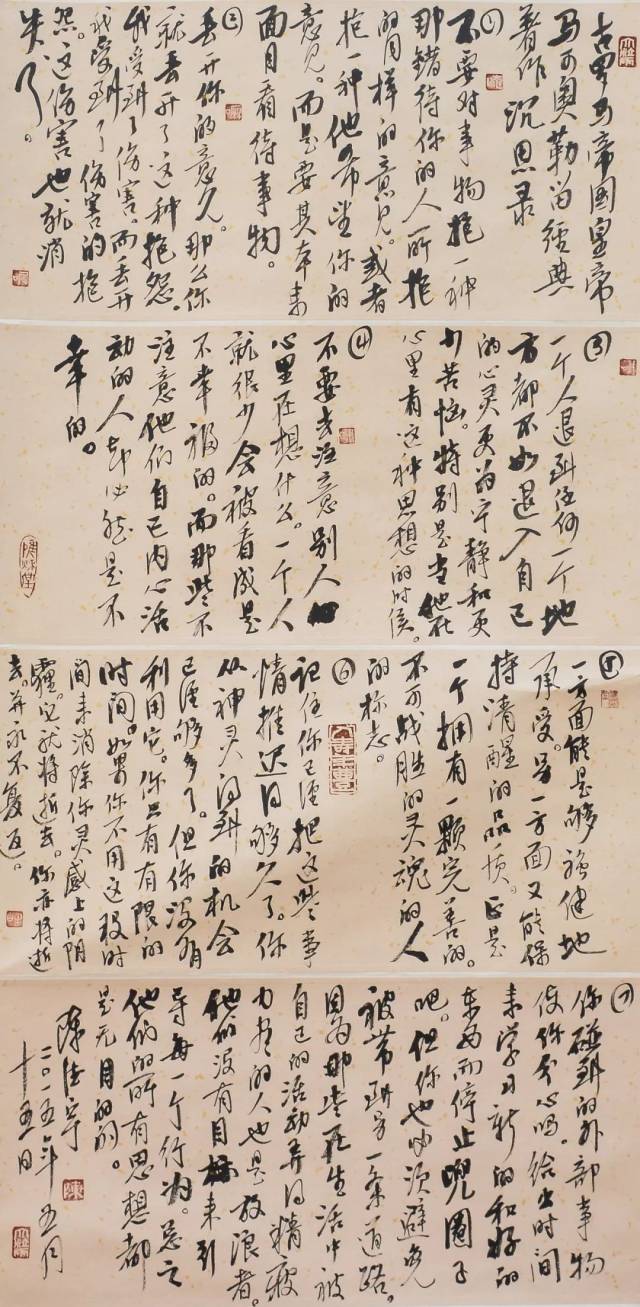 古罗马帝国皇帝
马可奥勒留经典
著作沉思录
①
不要对事物抱一种
那错待你的人所抱
的同样的意见。或者
抱一种他希望你的
意见。而是要其本来
面目看待事物。
②
丢开你的意见。那么你
就丢开了这种抱怨。
我受到了伤害。而丢开
我受到了伤害的抱
怨。这伤害也就消
失了。
③
一个人退到任何一个地
方都不如退入自己
的心灵更为宁静和更
少苦恼。特别是当他在
心里有这种思想的时候。
④
不要去注意别人
心里在想什么。一个人
就很少会被看成是
不幸福的。而那些不
注意他们自己内心活
动的人却必然是不
幸的。
⑤
一方面能足够强健地
承受。另一方面又能保
持清醒的品质。正是
一个拥有一颗完善的。
不可战胜的灵魂的人
的标志。
⑥
记住你已经把这些事
情推迟得够久了。你
从神灵得到的机会
已经够多了。但你没有
利用它。你只有有限的
时间。如果你不用这段时
间来消除你灵感上的阴
霾。它就将逝去。你亦将逝
去。并永不复返。
⑦
你碰到的外部事物
使你分心吗。给出时间
来学习新的和好的
东西而停止兜圈子
吧。但你也必须避免
被带到另一条道路。
因为那些在生活中被
自己的活动弄得精疲
力尽的人也是放浪者。
他们没有目标来引
导每一个行为。总之
他们的所有思想都
是无目的的。
二〇一五年五月
十五日